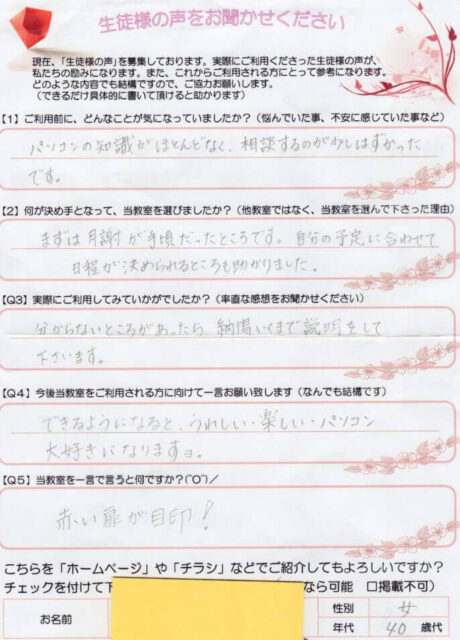 生徒様の声をお聞かせください
現在、「生徒様の声」を募集しております。実際にご利用くださった生徒様の声が、
私たちの励みになります。また、これからご利用される方にとって参考になります。
どのような内容でも結構ですので、ご協力お願いします。
（できるだけ具体的に書いて頂けると助かります）
【1】ご利用前に、どんなことが気になっていましたか？（悩んでいた事、不安に感じていた事など）
パソコンの知識がほとんどなく、相談するのが少しはずかった
です。
【2】何が決め手となって、当教室を選びましたか？（他教室ではなく、当教室を選んで下さった理由）
まずは月謝が手頃だったところです。自分の予定に合わせて
日程が決められるところも助かりました。
【Q3】実際にご利用してみていかがでしたか？（率直な感想をお聞かせください）
分からないところがあったら、納得いくまで説明をして
下さいます。
【Q4】今後当教室をご利用される方に向けて一言お願い致します（なんでも結構です）
できるようになると、うれしい・楽しい・パソコン
大好きになりますョ。
【Q5】当教室を一言で言うと何ですか？(^O^)／
赤い扉が目印！
こちらを「ホームページ」や「チラシ」などでご紹介してもよろしいですか？
チェックを付けて下 なら可能 □掲載不可）
お名前 性別 女
年代 40 歳代